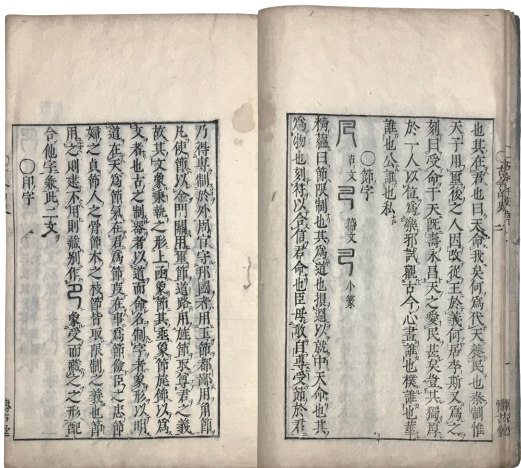 也其在君也曰天命我矣何爲代天養民也秦制惟
天子用璽後之人因改從王於義何居李斯又爲之
刻曰受命于天既壽永昌天之愛民甚矣豈其獨厚
於一人以位爲樂邪試觀古今心畫誰也樸誰也華
誰也公誰也私
○節字
古文 籀文 小篆
精蘊曰節限制也其爲道也損過以就中天命也其
爲物也刻符以合信君命也臣毋敢自專受節於君
乃得專制於外周官守邦國者用玉節都鄙用角節
凡使節以金門關用璽節道路用旌節取尊君之義
故其文象秉執之形上函節其垂象節旄飾以爲
文者也古之制器者以道而命名制字者象形以明
道在天爲節氣在君爲節度在事爲節儉臣之忠節
婦之貞節人之骨節木之枝節皆取限制之義也節
用之則達不用則藏別作 象受而藏之之形配
合他字兼此二文
○印字